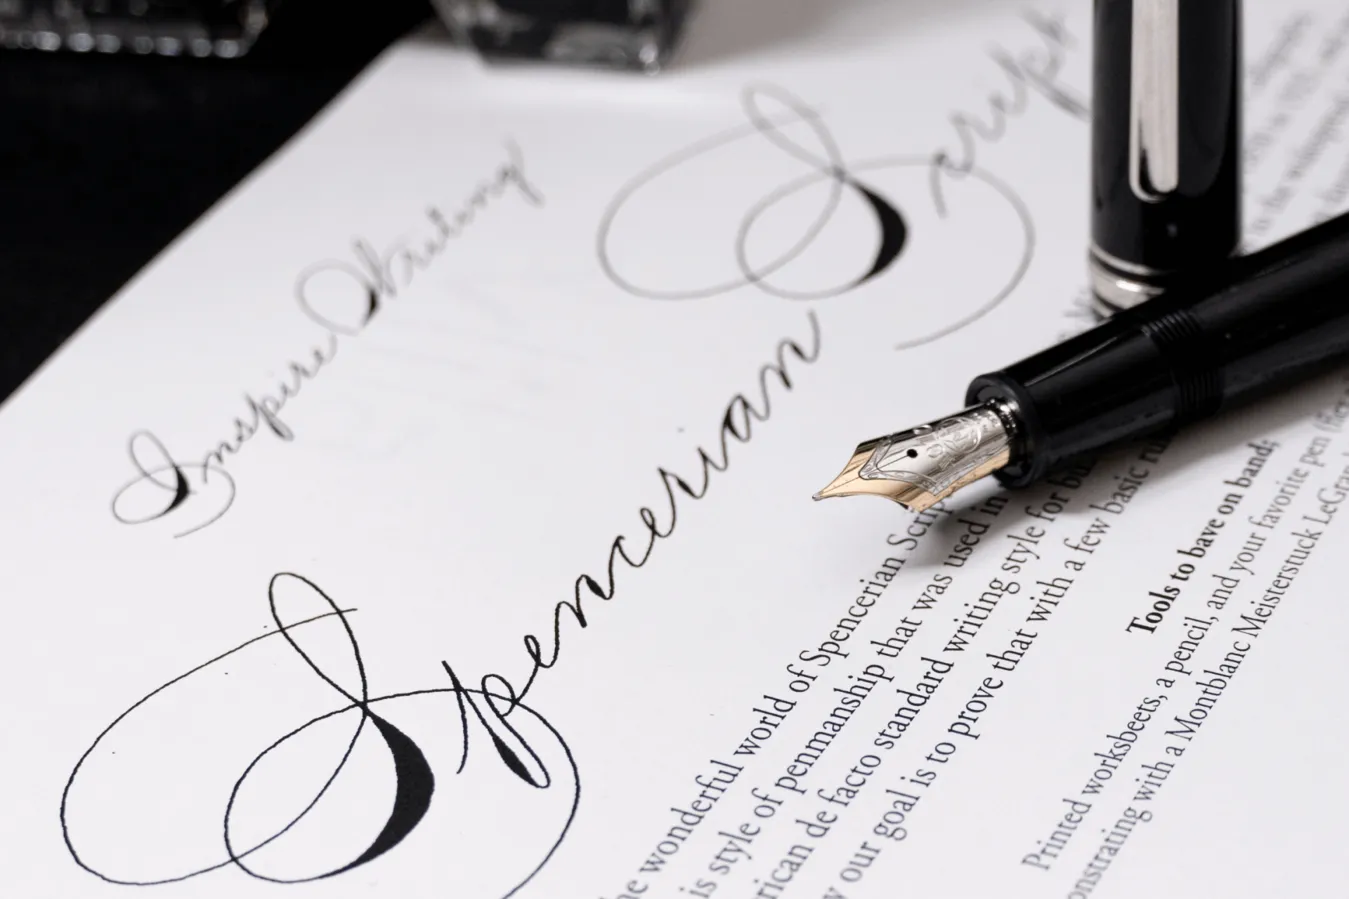 Inspire Writing
Spencerian Script
he wonderful world of Spencerian Scrip
is style of penmanship that was used in
rican de facto standard writing style for bu
y our goal is to prove that with a few basic ru
Tools to have on hand:
Printed worksheets, a pencil, and your favorite pen
onstrating with a Montblanc Meisterstuck LeGran